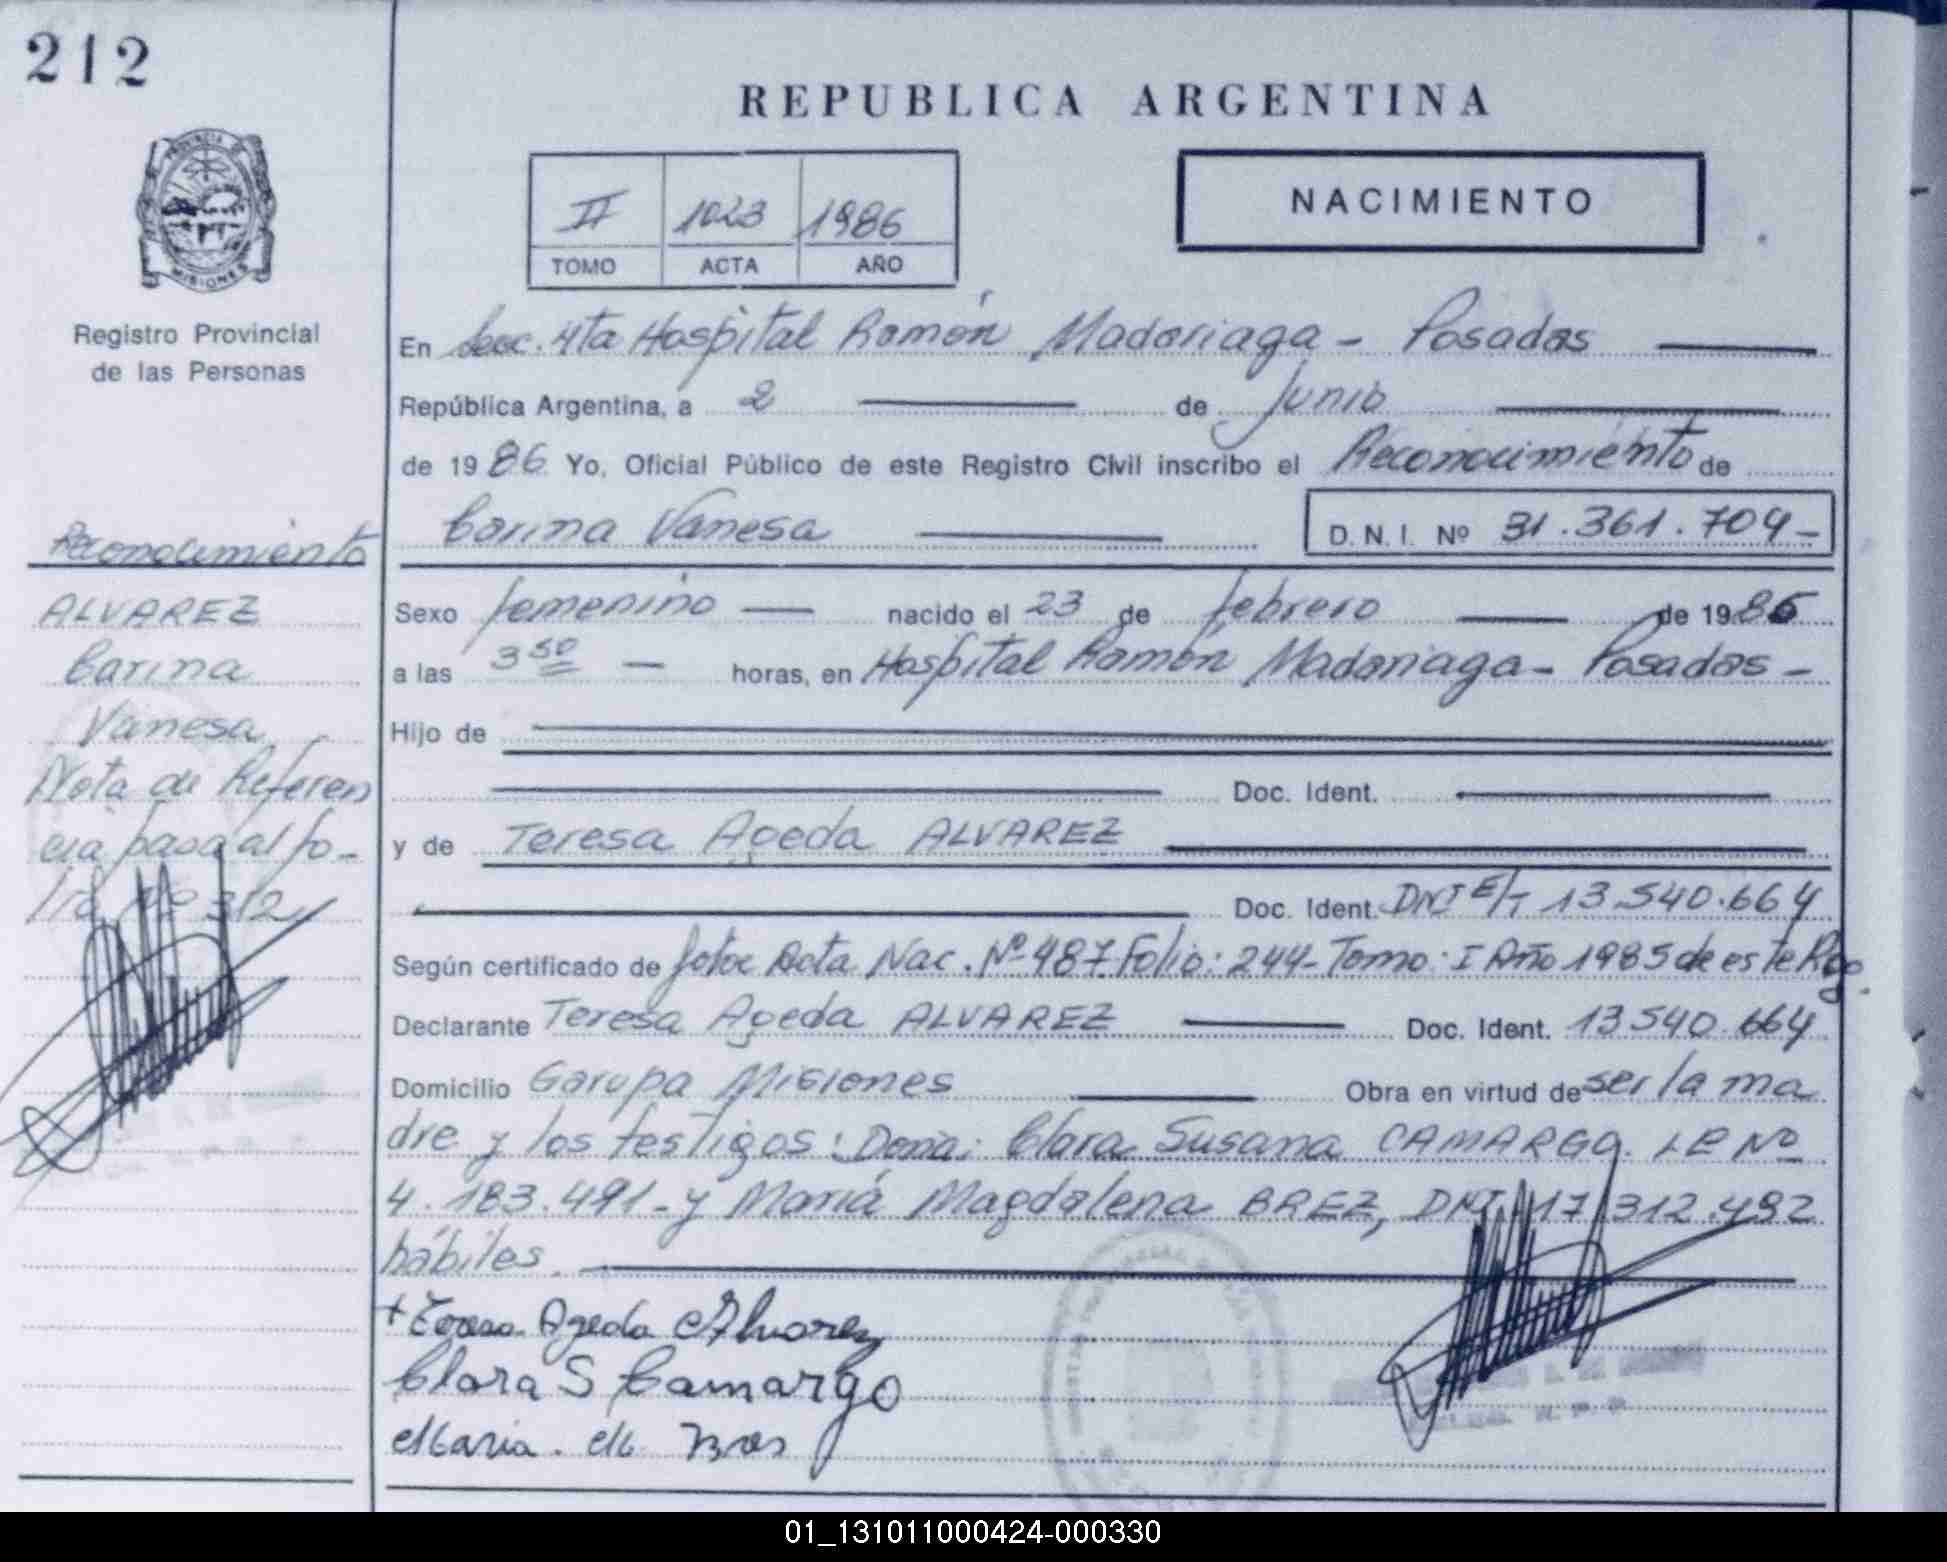 212
REPUBLICA ARGENTINA
II 1023 1986
TOMO ACTA AÑO
NACIMIENTO
PROVINCIA DE MISIONES
Registro Provincial
de las Personas
En Secc. 4ta Hospital Ramón Madariaga - Posadas
República Argentina, a 2 de Junio
de 1986 Yo, Oficial Público de este Registro Civil inscribo el Reconocimiento de
Carina Vanesa D.N.I. Nº 31.361.704-
Reconocimiento
ALVAREZ
Carina
Vanesa
Nota de Referen
cia pasa al fo-
lio Nº 312
Sexo femenino nacido el 23 de febrero de 1985
a las 3 50 horas, en Hospital Ramón Madariaga - Posadas -
Hijo de
Doc. Ident.
y de Teresa Ageda ALVAREZ
Doc. Ident. DNI E/T 13.540.664
Según certificado de fotoc Acta Nac. Nº 487 Folio: 244- Tomo: I Año 1985 de este Rgo.
Declarante Teresa Ageda ALVAREZ Doc. Ident. 13.540.664
Domicilio Garupa Misiones Obra en virtud de ser la ma
dre y los testigos: Doña: Clara Susana CAMARGO. LE Nº
4.183.491- y María Magdalena BREZ, DNI 17.312.492
hábiles.
+ Teresa Ageda Alvarez
Clara S Camargo
Maria. M.
01_131011000424-000330